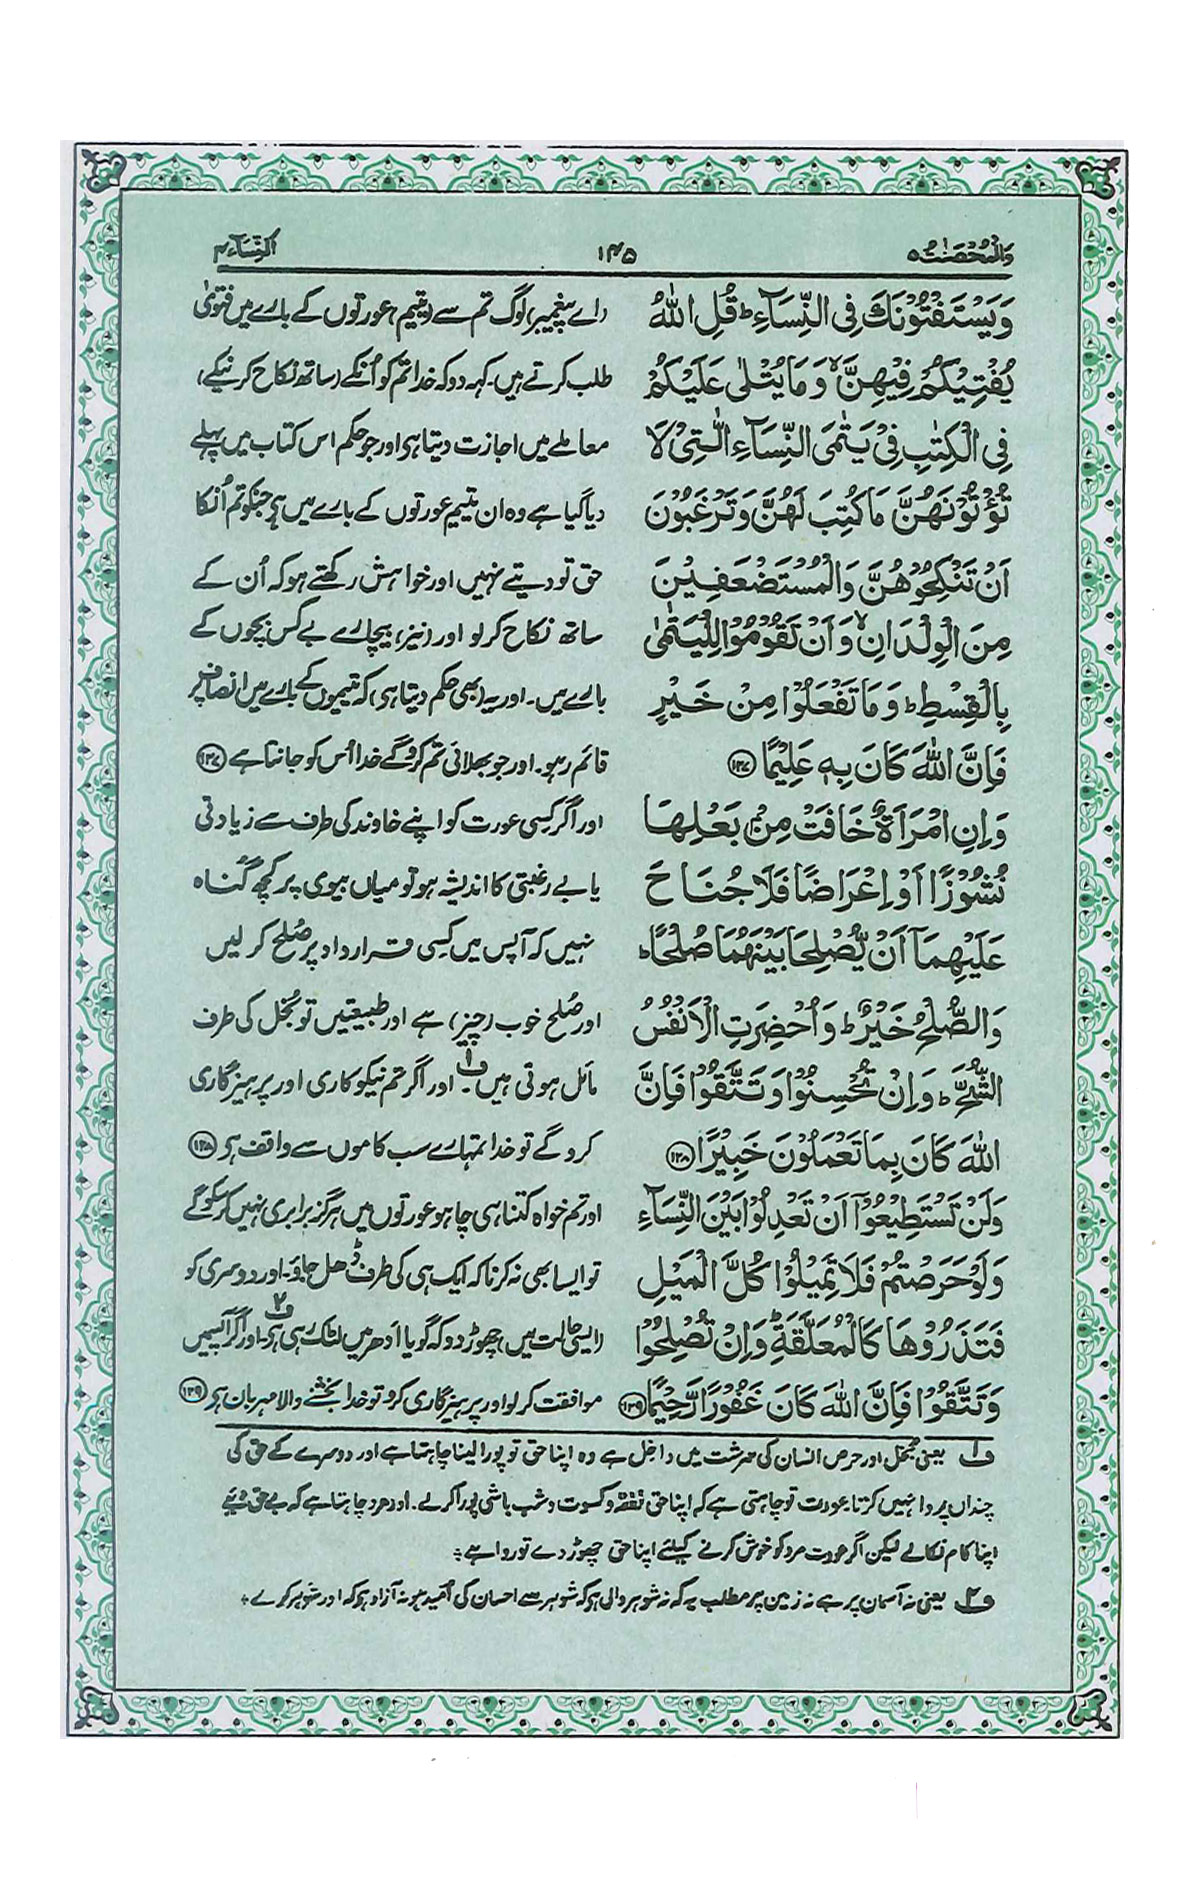 وَالْمُحْصَنٰتُ ۵
۱۴۵
اَلنِّسَآء ۴
وَيَسْتَفْتُوْنَكَ فِى النِّسَآءِ ؕ قُلِ اللّٰهُ
يُفْتِيْكُمْ فِيْهِنَّ ۙ وَمَا يُتْلٰى عَلَيْكُمْ
فِى الْكِتٰبِ فِىْ يَتٰمَى النِّسَآءِ الّٰتِىْ لَا
تُؤْتُوْنَهُنَّ مَا كُتِبَ لَهُنَّ وَتَرْغَبُوْنَ
اَنْ تَنْكِحُوْهُنَّ وَالْمُسْتَضْعَفِيْنَ
مِنَ الْوِلْدَانِ ۙ وَاَنْ تَقُوْمُوْا لِلْيَتٰمٰى
بِالْقِسْطِ ؕ وَمَا تَفْعَلُوْا مِنْ خَيْرٍ
فَاِنَّ اللّٰهَ كَانَ بِهٖ عَلِيْمًا ۱۲۷
وَاِنِ امْرَاَةٌ خَافَتْ مِنْۢ بَعْلِهَا
نُشُوْزًا اَوْ اِعْرَاضًا فَلَا جُنَاحَ
عَلَيْهِمَاۤ اَنْ يُّصْلِحَا بَيْنَهُمَا صُلْحًا ؕ
وَالصُّلْحُ خَيْرٌ ؕ وَاُحْضِرَتِ الْاَنْفُسُ
الشُّحَّ ؕ وَاِنْ تُحْسِنُوْا وَتَتَّقُوْا فَاِنَّ
اللّٰهَ كَانَ بِمَا تَعْمَلُوْنَ خَبِيْرًا ۱۲۸
وَلَنْ تَسْتَطِيْعُوْۤا اَنْ تَعْدِلُوْا بَيْنَ النِّسَآءِ
وَلَوْ حَرَصْتُمْ فَلَا تَمِيْلُوْا كُلَّ الْمَيْلِ
فَتَذَرُوْهَا كَالْمُعَلَّقَةِ ؕ وَاِنْ تُصْلِحُوْا
وَتَتَّقُوْا فَاِنَّ اللّٰهَ كَانَ غَفُوْرًا رَّحِيْمًا ۱۲۹
(اے پیغمبر) لوگ تم سے (یتیم) عورتوں کے بارے میں فتویٰ
طلب کرتے ہیں۔ کہہ دو کہ خدا تم کو اُنکے (ساتھ نکاح کرنیکے)
معاملے میں اجازت دیتا ہی اور جو حکم اس کتاب میں پہلے
دیا گیا ہے وہ ان یتیم عورتوں کے بارے میں ہی جنکو تم اُنکا
حق تو دیتے نہیں اور خواہش رکھتے ہو کہ اُن کے
ساتھ نکاح کر لو اور (نیز) بیچارے بے کس بچوں کے
بارے میں۔ اور یہ (بھی حکم دیتا ہی) کہ یتیموں کے بارے میں انصاف پر
قائم رہو۔ اور جو بھلائی تم کرو گے خدا اُس کو جانتا ہے ۱۲۷
اور اگر کسی عورت کو اپنے خاوند کی طرف سے زیادتی
یا بے رغبتی کا اندیشہ ہو تو میاں بیوی پر کچھ گناہ
نہیں کہ آپس میں کسی قرارداد پر صُلح کر لیں
اور صُلح خوب (چیز) ہے اور طبیعتیں تو بُخل کی طرف
مائل ہوتی ہیں ف۱۔ اور اگر تم نیکوکاری اور پرہیزگاری
کرو گے تو خدا تمہارے سب کاموں سے واقف ہی ۱۲۸
اور تم خواہ کتنا ہی چاہو عورتوں میں ہرگز برابری نہیں کر سکو گے
تو ایسا بھی نہ کرنا کہ ایک ہی کی طرف ڈھل جاؤ۔ اور دوسری کو
(ایسی حالت میں) چھوڑ دو کہ گویا اَدھر میں لٹک رہی ہی ف۲۔ اور اگر آپسمیں
موافقت کر لو اور پرہیزگاری کرو تو خدا بخشنے والا مہربان ہی ۱۲۹
ف۱ یعنی بخل اور حرص انسان کی سرشت میں داخل ہے وہ اپنا حق تو پورا لینا چاہتا ہے اور دوسرے کے حق کی
چنداں پروا نہیں کرتا، عورت تو چاہتی ہے کہ اپنا حق نفقہ و کسوت و شب باشی پورا کر لے۔ اور مرد چاہتا ہے کہ بے حق دئیے
اپنا کام نکالے لیکن اگر عورت مرد کو خوش کرنے کیلئے اپنا حق چھوڑ دے تو روا ہے ؞
ف۲ یعنی نہ آسمان پر ہے نہ زمین پر مطلب یہ کہ نہ شوہر والی ہو کہ شوہر سے احسان کی اُمید ہو نہ آزاد ہو کہ اور شوہر کرے ؞